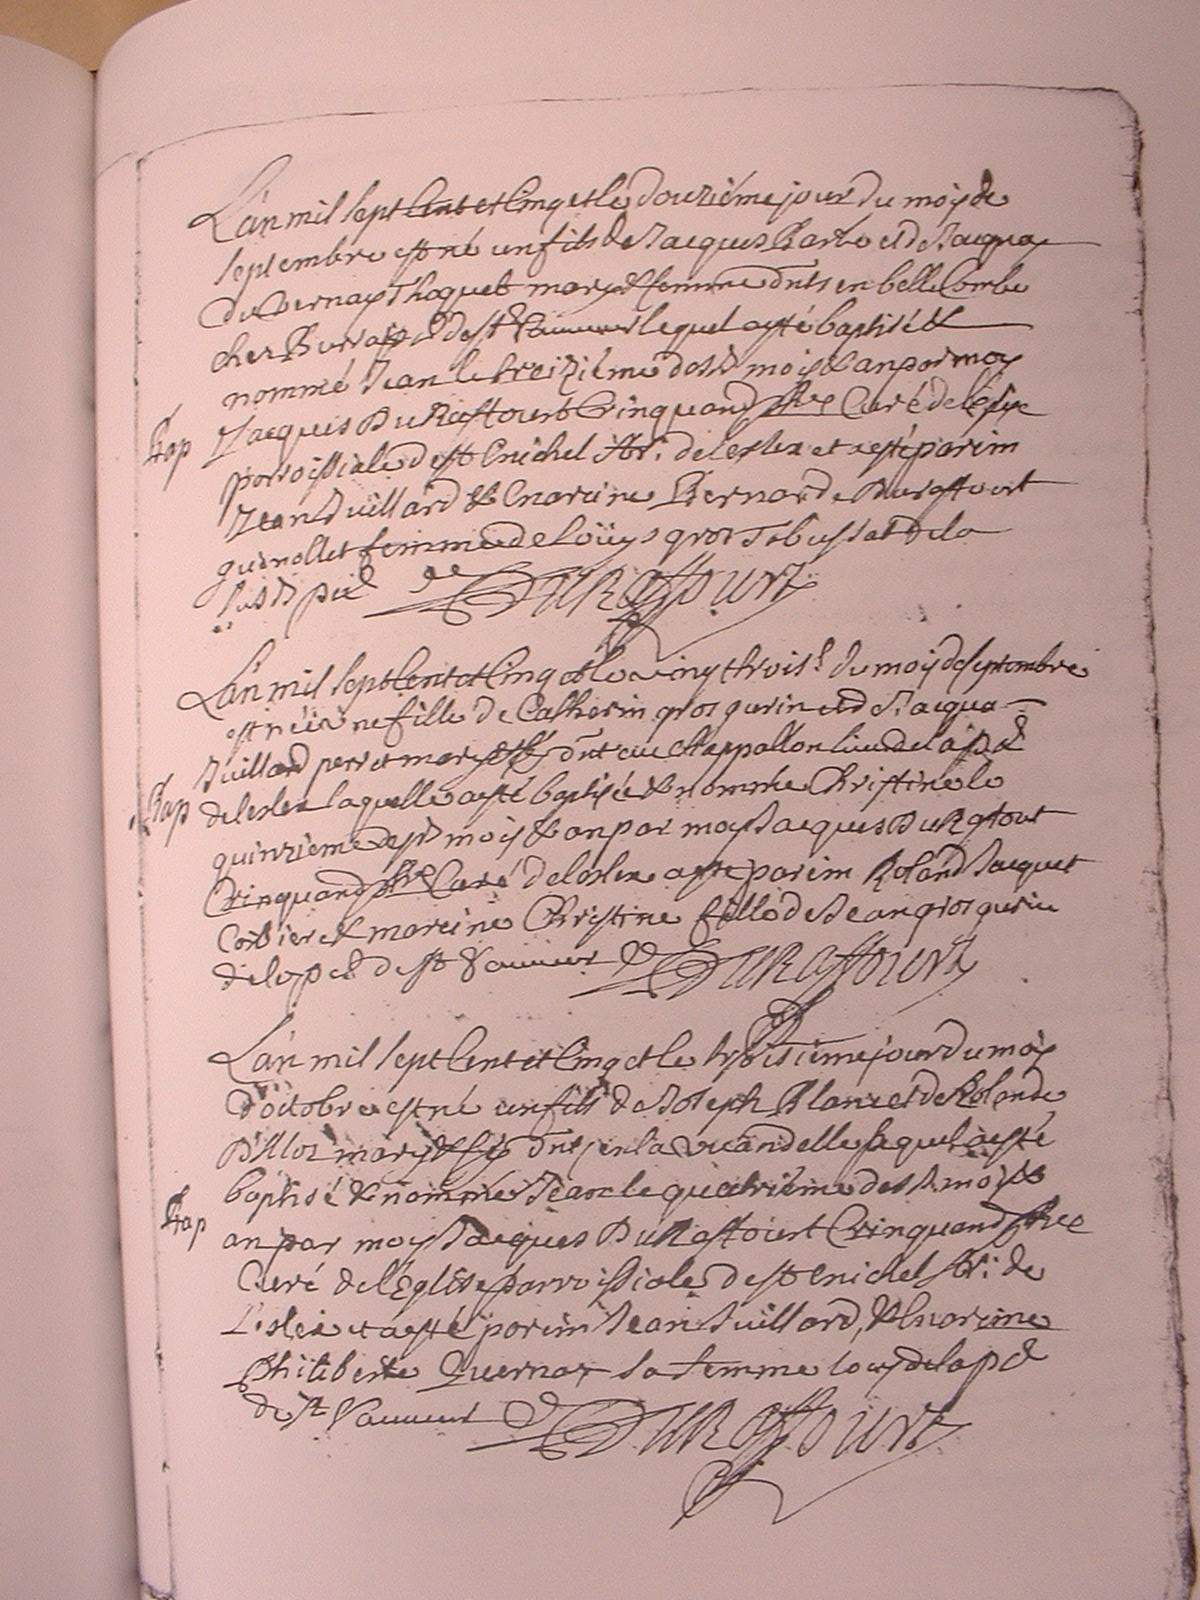 L'an mil sept Cent et Cinq et le douziéme jour du moys de
septembre est né un fils de Jacques Barbe et de Jacqua
du Vernay Thoquet maryé & femme dnts en belle Combe
chez Burra de st Sauveur lequel a esté baptisé &
nommé Jean le treiziéme desd mois & an par moy
Jacques Duraffourt Crinquand pbre Curé de l'eglise
parroissiale de st Michel Ar: de leslex et a esté parein
Jean Vuillard & Mareine Bernarde Duraffourt
guinollet femme de Loüys gros Tabussat de la
susd pse
Duraffourt
Bap
L'an mil sept Cent et Cinq et le vingt trois.e du moys de septembre
est née une fille de Catherin gros gurin et de Jacqua
Vuillard pere et mary dnt au Chappallon lieu de la pse
de leslex laquelle a esté baptisée & nommée Christine le
quinzieme desd mois & an par moy Jacques Duraffourt
Crinquand pbre Curé de leslex a esté parein Roland Jacquet
Corbier & mareine Christine fille de Jean gros gurin
de la pse de st Sauveur
Duraffourt
Bap
L'an mil sept Cent et Cinq et le troisiéme jour du moys
d'octobre est né un fils de Joseph Blanc et de Rolande
Billoz maryé & fe dnts en la Vicandelle lequel a esté
baptisé & nommé Jean le quatriéme desd mois &
an par moy Jacques Duraffourt Crinquand pbre
Curé de l'Eglise parroissiale de st Michel Ar: de
Leslex et a esté parein Jean Vuillard, & Mareine
Philiberte Vuernax sa femme tous de la pse
de st Sauveur
Duraffourt
Bap